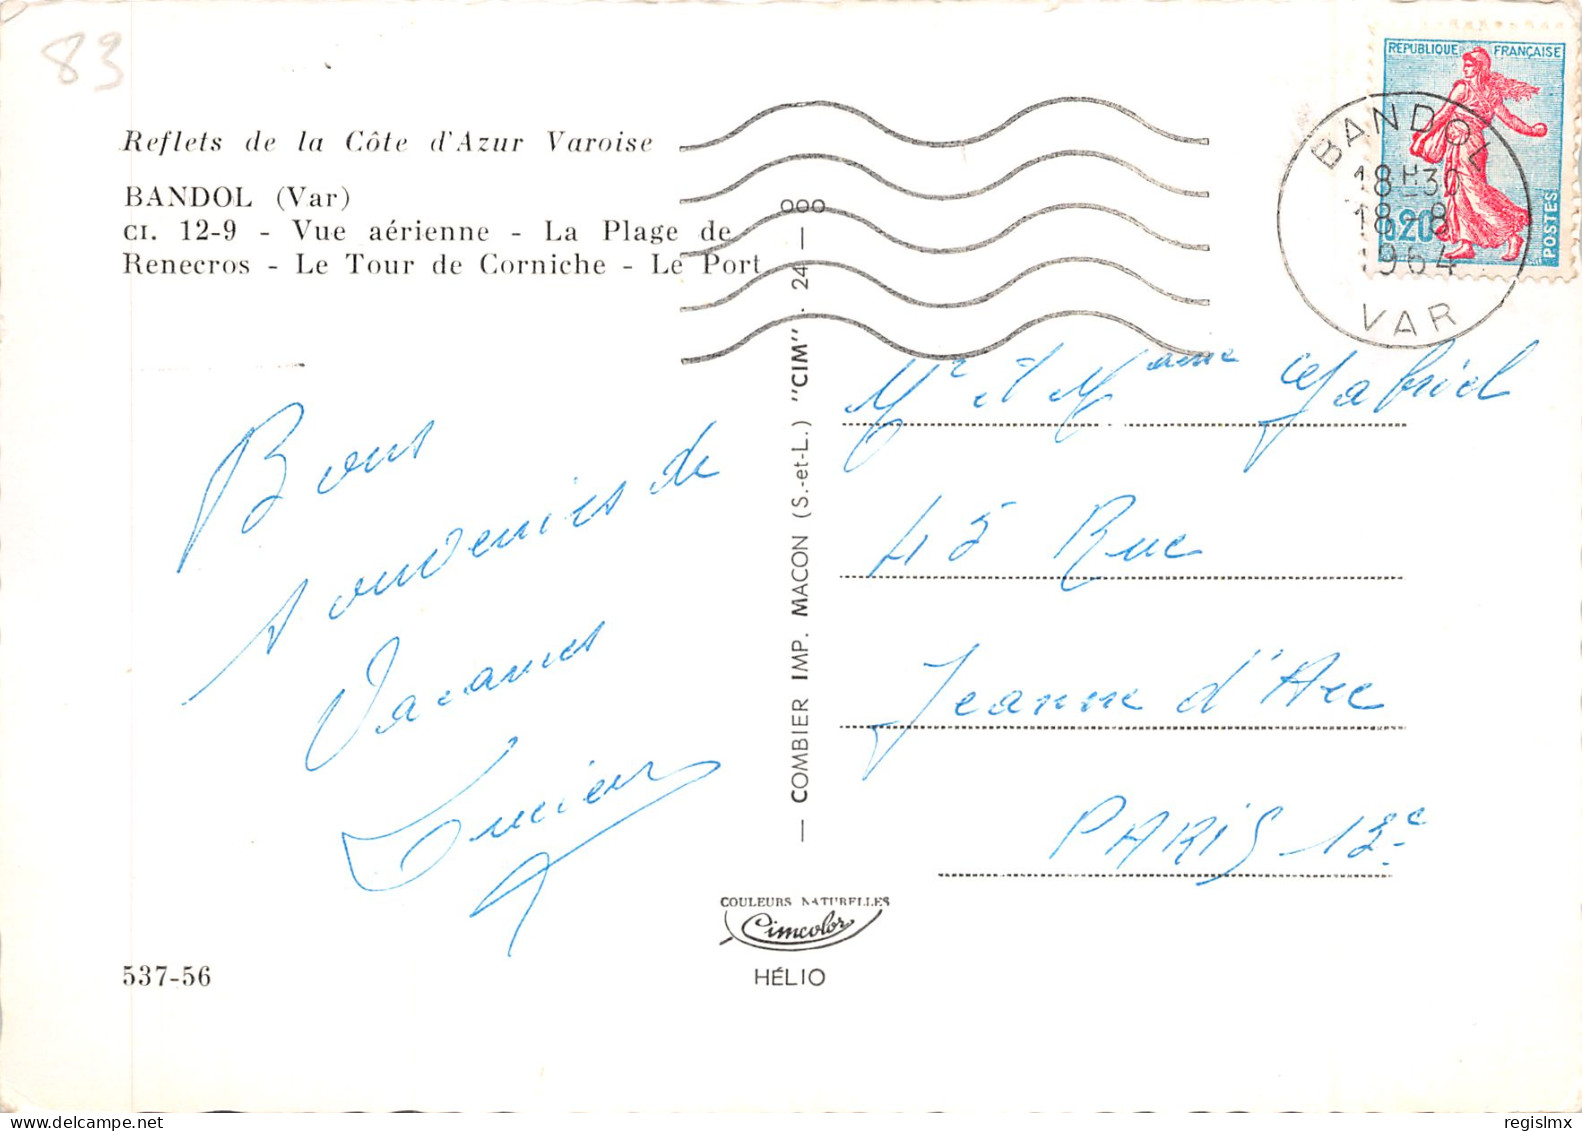 83
Reflets de la Côte d'Azur Varoise
BANDOL (Var)
CI. 12-9 - Vue aérienne - La Plage de
Renecros - Le Tour de Corniche - Le Port
Bons
souvenirs de
Vacances
Lucien
537-56
— COMBIER IMP. MACON (S.-et-L.) "CIM" . 24 — 000
COULEURS NATURELLES
Cimcolor
HÉLIO
REPUBLIQUE FRANÇAISE
0,20
POSTES
BANDOL
18H30
18-8
1964
VAR
Mr et Mame Gabriel
45 Rue
Jeanne d'Arc
PARIS 13e
regislmx